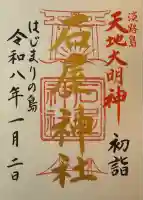 淡路島
天地大明神
初詣
石尾神社
はじまりの島
令和八年一月二日